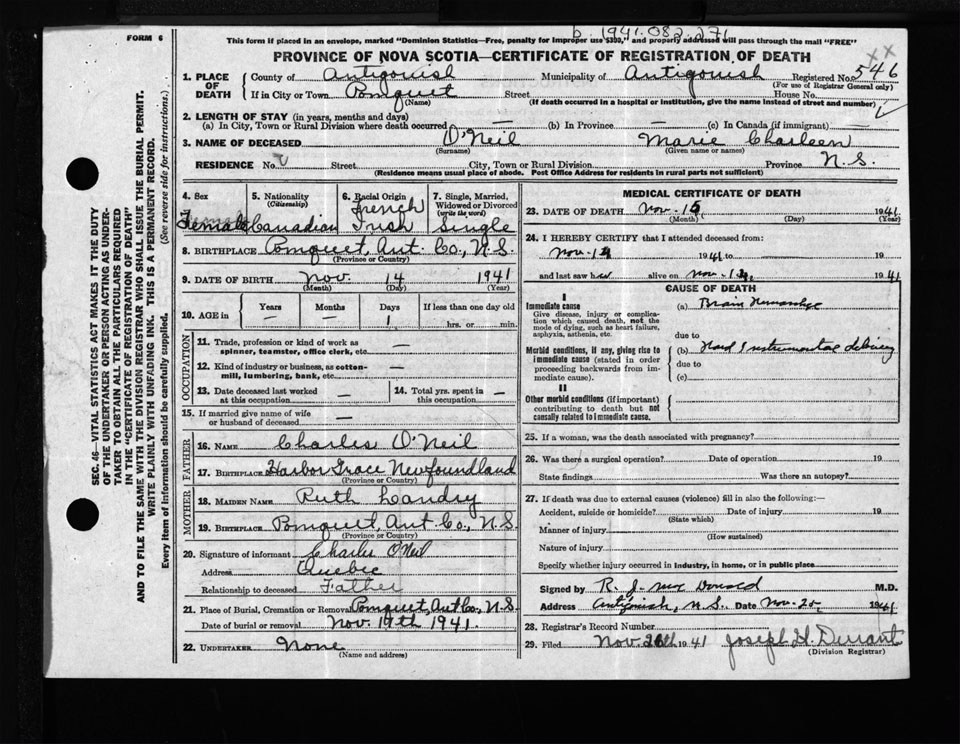 FORM 6
This form if placed in an envelope, marked "Dominion Statistics—Free, penalty for improper use $300," and properly addressed will pass through the mail "FREE"
b 1941.082.271
PROVINCE OF NOVA SCOTIA—CERTIFICATE OF REGISTRATION OF DEATH
xx
1. PLACE OF DEATH
County of Antigonish Municipality of Antigonish Registered No. 546
(For use of Registrar General only)
If in City or Town Pomquet Street House No.
(Name) (If death occurred in a hospital or institution, give the name instead of street and number)
2. LENGTH OF STAY (in years, months and days)
(a) In City, Town or Rural Division where death occurred — (b) In Province — (c) In Canada (if immigrant) —
3. NAME OF DECEASED O'Neil Marie Charleen
(Surname) (Given name or names)
RESIDENCE No. Street City, Town or Rural Division Province N.S.
(Residence means usual place of abode. Post Office Address for residents in rural parts not sufficient)
4. Sex Female
5. Nationality (Citizenship) Canadian
6. Racial Origin French Irish
7. Single, Married, Widowed or Divorced (write the word) Single
8. BIRTHPLACE Pomquet, Ant. Co., N.S.
(Province or Country)
9. DATE OF BIRTH Nov. 14 1941
(Month) (Day) (Year)
10. AGE in Years — Months — Days 1 If less than one day old hrs. or min.
OCCUPATION
11. Trade, profession or kind of work as spinner, teamster, office clerk, etc. —
12. Kind of industry or business, as cotton-mill, lumbering, bank, etc. —
13. Date deceased last worked at this occupation —
14. Total yrs. spent in this occupation —
15. If married give name of wife or husband of deceased —
FATHER
16. NAME Charles O'Neil
17. BIRTHPLACE Harbor Grace Newfoundland
(Province or Country)
MOTHER
18. MAIDEN NAME Ruth Landry
19. BIRTHPLACE Pomquet, Ant. Co., N.S.
(Province or Country)
20. Signature of informant Charles O'Neil
Address Quebec
Relationship to deceased Father
21. Place of Burial, Cremation or Removal Pomquet, Ant Co., N.S.
Date of burial or removal Nov. 17th 1941.
22. UNDERTAKER None
(Name and address)
MEDICAL CERTIFICATE OF DEATH
23. DATE OF DEATH Nov. 15 1941
(Month) (Day) (Year)
24. I HEREBY CERTIFY that I attended deceased from:
Nov. 1941 to 19
and last saw her alive on Nov. 1941
CAUSE OF DEATH
I
Immediate cause
Give disease, injury or complication which caused death, not the mode of dying, such as heart failure, asphyxia, asthenia, etc.
(a) Brain Hemorrhage
due to
Morbid conditions, if any, giving rise to immediate cause (stated in order proceeding backwards from immediate cause).
(b) Hard Instrumental delivery
due to
(c)
II
Other morbid conditions (if important) contributing to death but not causally related to immediate cause.
25. If a woman, was the death associated with pregnancy?
26. Was there a surgical operation? Date of operation 19
State findings Was there an autopsy?
27. If death was due to external causes (violence) fill in also the following:—
Accident, suicide or homicide? Date of injury 19
(State which)
Manner of injury
(How sustained)
Nature of injury
Specify whether injury occurred in industry, in home, or in public place
Signed by R. J. McDonald M.D.
Address Antigonish, N.S. Date Nov. 20 1941
28. Registrar's Record Number
29. Filed Nov. 26th 1941 Joseph H. Durrant
(Division Registrar)
SEC. 46—VITAL STATISTICS ACT MAKES IT THE DUTY
OF THE UNDERTAKER OR PERSON ACTING AS UNDERTAKER TO OBTAIN ALL THE PARTICULARS REQUIRED
IN THE "CERTIFICATE OF REGISTRATION OF DEATH"
AND TO FILE THE SAME WITH THE DIVISION REGISTRAR WHO SHALL ISSUE THE BURIAL PERMIT.
WRITE PLAINLY WITH UNFADING INK. THIS IS A PERMANENT RECORD.
Every item of information should be carefully supplied. (See reverse side for instructions.)